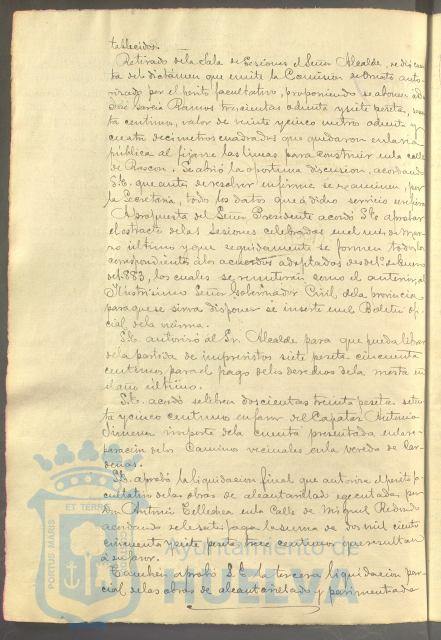 tablecidos.
Retirado de la Sala de Sesiones el Señor Alcalde, se dió cuen
ta del dictámen que emite la Comision de Ornato auto
rizado por el perito facultativo, proponiendo se abonen á D.
José García Ramos trescientas ochenta y siete pesetas,
centimos, valor de veinte y cinco metros ochenta y
cuatro decimetros cuadrados que quedaron en la via
pública al fijarse las lineas para construir en la calle
de Rascon. Se abrió la oportuna discusion, acordando
S.E. que antes de resolver informe se examinen, por
la Secretaría, todos los datos que á dicho servicio
A propuesta del Señor Presidente acordó S.E. aprobar
el extracto de las sesiones celebradas en el mes de
último y que seguidamente se formen todos los
correspondientes á los acuerdos adoptados desde 1º de Enero
de 1883, los cuales se remitirán como el anterior, al
Ilustrísimo Señor Gobernador Civil de la provincia
para que se sirva disponer se inserte en el Boletin ofi
cial de la misma.
S.E. autorizó al Sr. Alcalde para que pueda librar
de la partida de imprevistos siete pesetas cincuenta
centimos para el pago de los derechos de la mesta en
el año último.
S.E. acordó se libren doscientas treinta pesetas seten
ta y cinco centimos en favor del Capataz Antonio
Jimenez importe de la cuenta presentada en la re
paracion de los Caminos vecinales en la vereda de Car
denas.
S.E. aprobó la liquidacion final que autoriza el perito fa
cultativo de las obras de alcantarillado egecutadas por
Don Antonio Tellechea en la Calle de Miguel Redondo
acordando se le satisfaga la suma de dos mil ciento
cincuenta y siete pesetas trece centimos que resultan
á su favor.
Tambien aprobó S.E. la tercera liquidacion par
cial de las obras de alcantarillado y pavimentado
PORTUS MARIS
ET TERRÆ
Ayuntamiento de
HUELVA